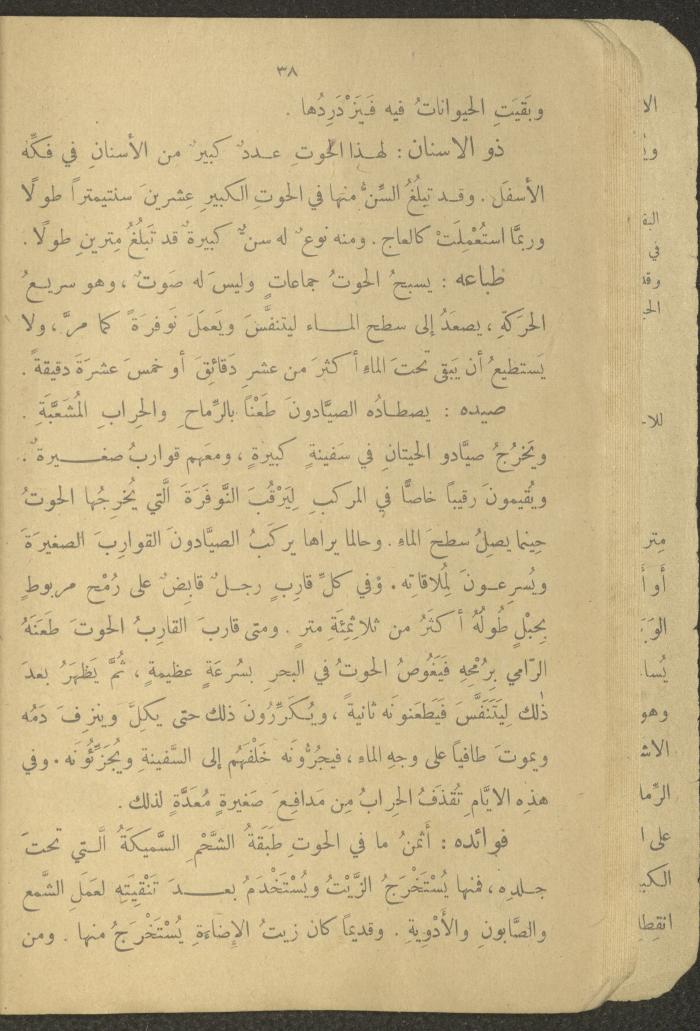 ٣٨
وبَقيَتِ الحيواناتُ فيه فَيَزْدَرِدُها .
ذو الاسنان : لهـذا الحوتِ عـددٌ كبيرٌ من الأسنانِ في فكِّه
الأسفل . وقـد تبلُغُ السِّنُّ منها في الحوتِ الكبيرِ عِشرينَ سنتيمتراً طولًا
وربمَّا استُعْمِلَتْ كالعاجِ . ومنه نوعٌ له سنٌّ كبيرةٌ قد تَبلُغُ مِترينِ طولًا .
طباعه : يسبحُ الحوتُ جماعاتٍ وليسَ له صَوتٌ ، وهو سريـعُ
الحرَكَةِ ، يصعَدُ إلى سطحِ المـاء ليتنفَّسَ ويَعمَلَ نَوفرَةً كما مرَّ ، ولا
يَستطيعُ أن يَبقى تحتَ الماءِ أكثرَ من عشرِ دَقائِقَ أو خمسَ عشرَةَ دقيقةً .
صيده : يصطـادُه الصيَّادونَ طَعْنًا بالرِّماحِ والحِرابِ المُشَعَّبَةِ .
ويَخرُجُ صيَّادو الحيتانِ في سَفينةٍ كبيرةٍ ، ومعَهم قواربُ صغـيرةٌ .
ويُقيمونَ رَقيباً خاصًّا في المركبِ لِيَرْقُبَ النَّوفَرَةَ الَّتي يُخرِجُها الحوتُ
حِينما يصِلُ سطحَ الماءِ . وحالما يراها يركَبُ الصيَّادونَ القوارِبَ الصغيرَةَ
ويُسرِعـونَ لِمُلاقاتِه . وفي كلِّ قارِبٍ رجـلٌ قابِضٌ على رُمْحٍ مربوطٍ
بِحَبْلٍ طُولُهُ أكثَرُ من ثلاثِمِئَةِ مترٍ . ومتى قاربَ القارِبُ الحوتَ طَعَنَهُ
الرّامي بِرُمحِهِ فَيَغُوصُ الحوتُ في البحرِ بسُرعَةٍ عظيمةٍ ، ثُمَّ يَظهَرُ بعدَ
ذٰلك لِيَتَنَفَّسَ فَيَطعَنونَه ثانيةً ، ويُكَرِّرُونَ ذلك حتى يكِلَّ وينزِفَ دَمُه
ويموتَ طافياً على وجهِ الماءِ ، فيجرُّونَه خَلْفَهُم إلى السَّفينةِ ويُجَزِّئُونَه . وفي
هذه الايَّامِ تُقذَفُ الحِرابُ مِن مَدافِعَ صَغيرةٍ مُعَدَّةٍ لذلك .
فوائده : أثمنُ ما في الحوتِ طَبَقةُ الشَّحْمِ السَّميكَةُ الَّتي تحتَ
جـلدِه ، فمنها يُسْتَخْرَجُ الزَّيْتُ ويُسْتَخْدَمُ بعـدَ تَنْقِيَتِهِ لعَمَلِ الشَّمع
والصَّابونِ والأَدْوِيةِ . وقديماً كان زيتُ الإضاءَةِ يُسْتَخْرَجُ منها . ومن